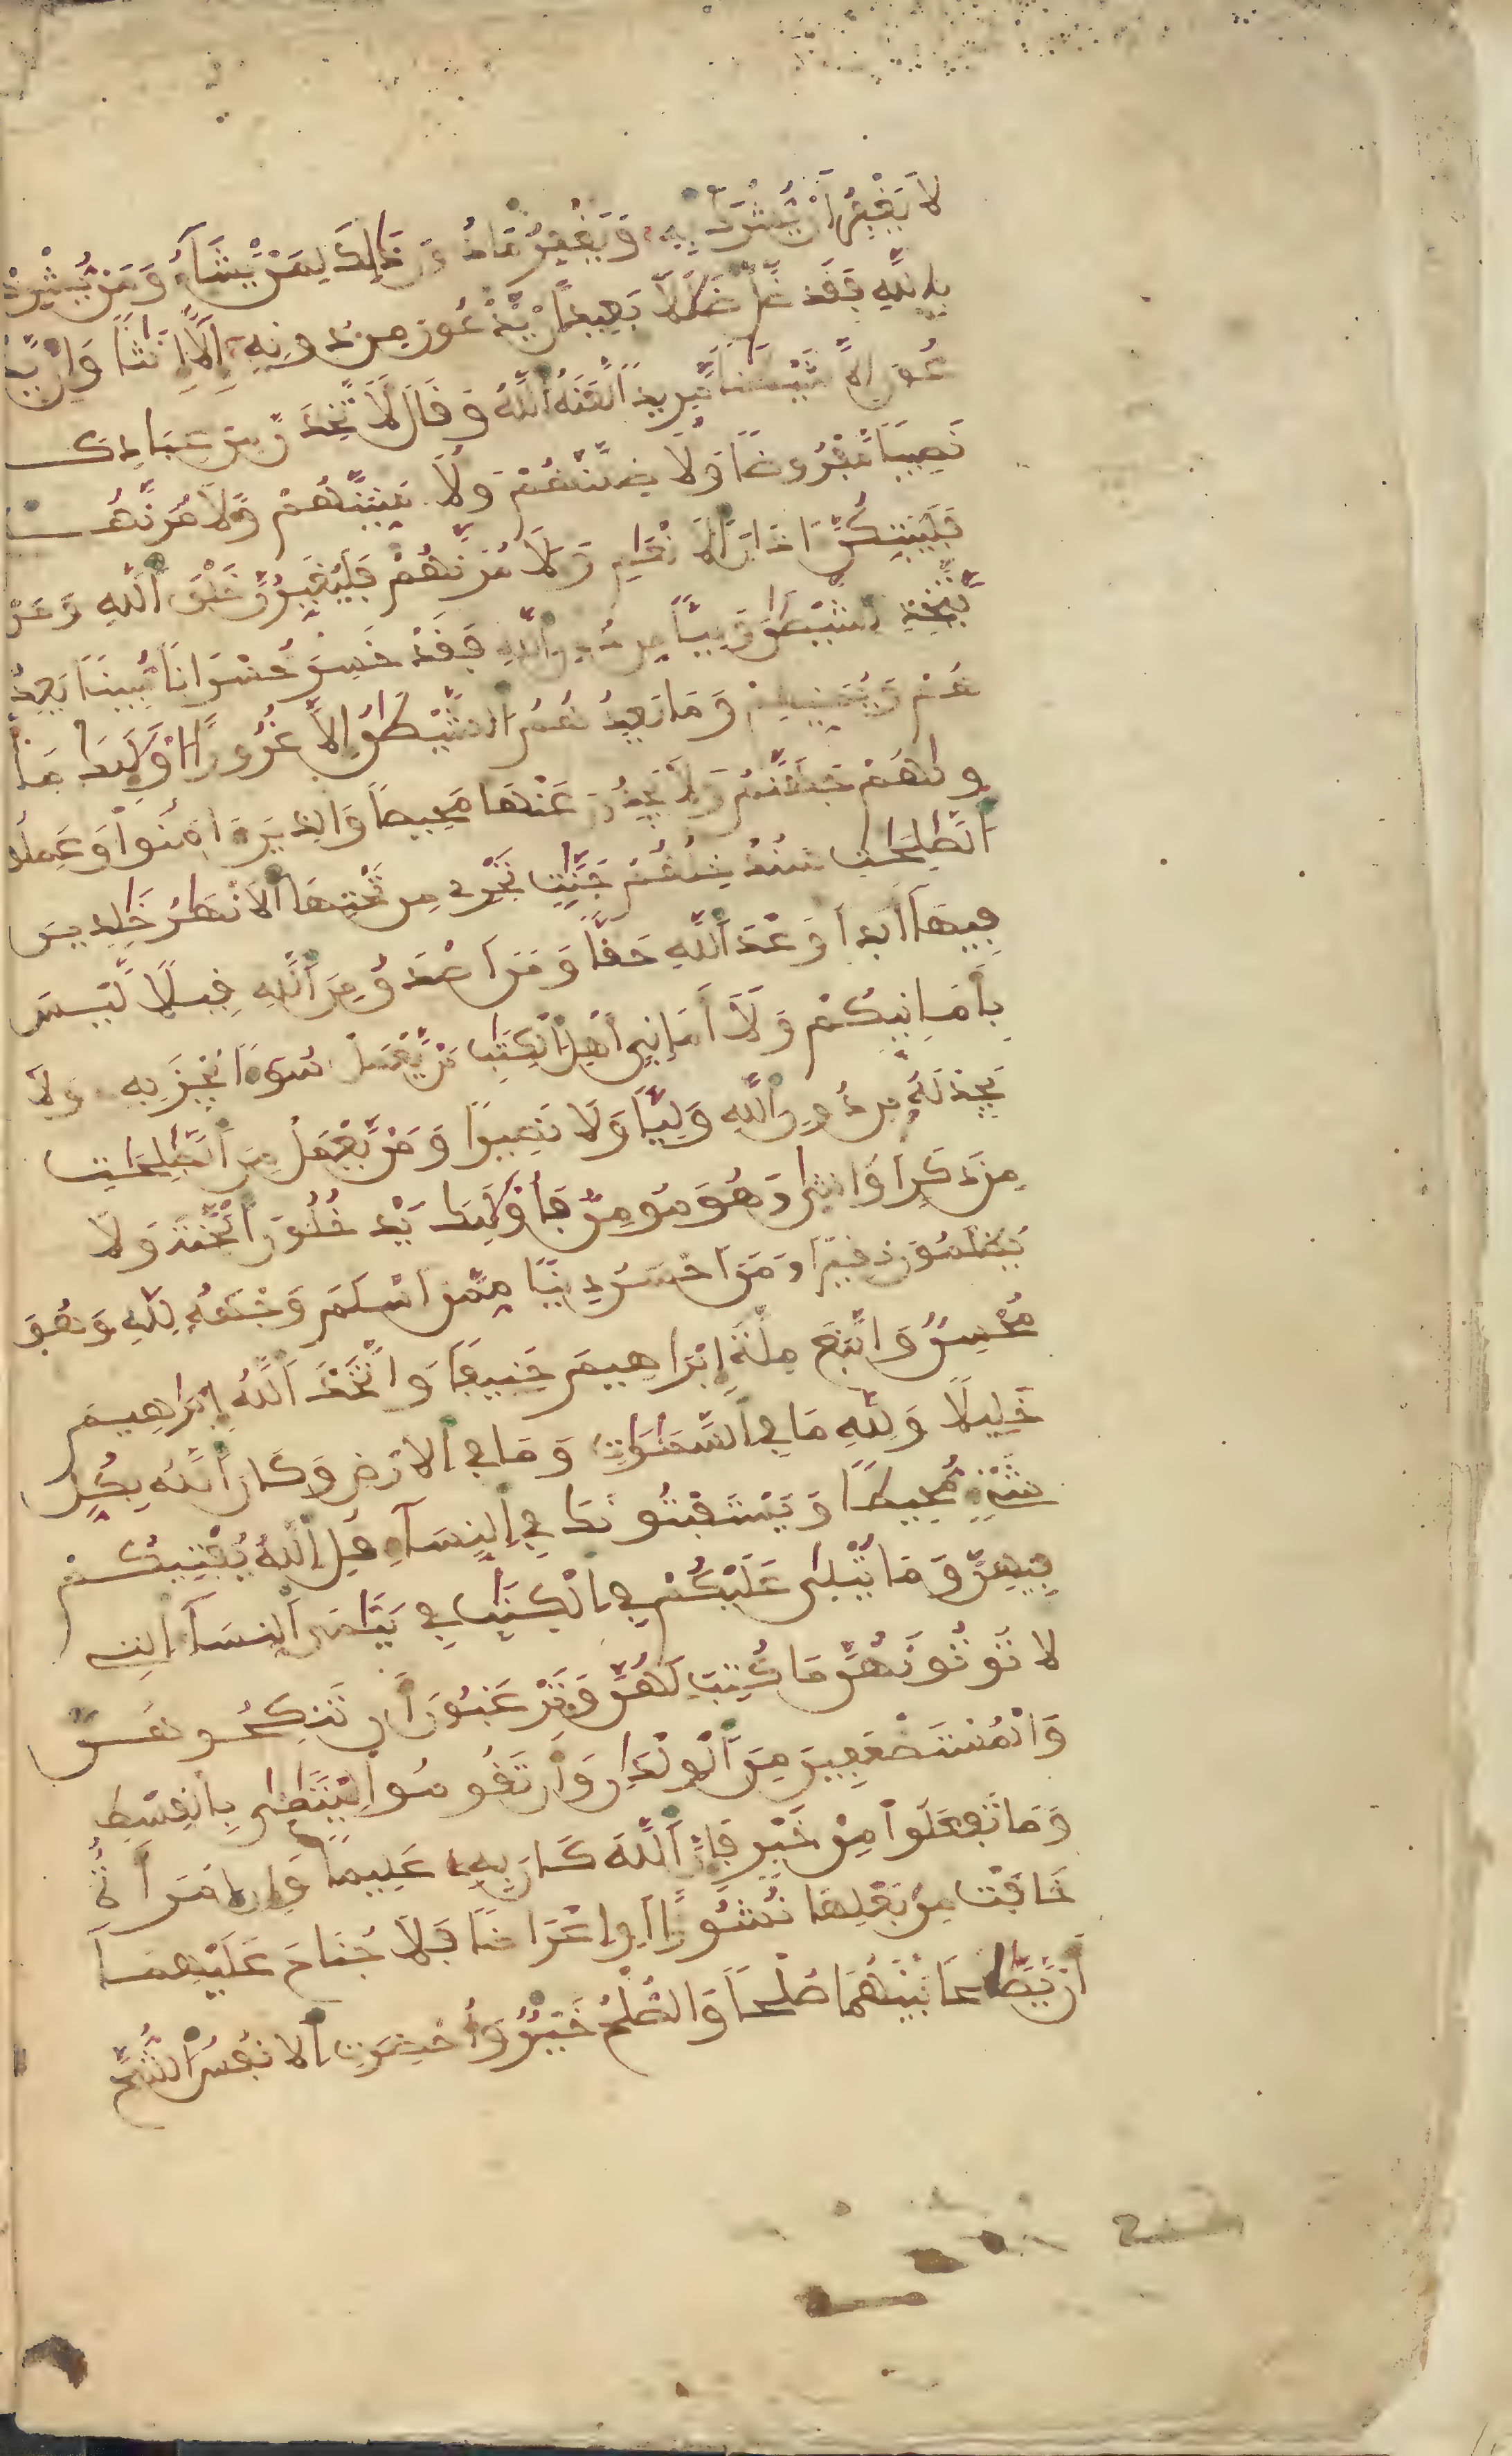 لَا يَغْفِرُ أَنْ يُّشْرَكَ بِهِ وَيَغْفِرُ مَا دُونَ ذَٰلِكَ لِمَنْ يَّشَآءُ وَمَنْ يُّشْرِكْ
بِاللَّهِ فَقَد ضَّلَّ ضَلَٰلًا بَعِيدًا اِنْ يَّدْعُونَ مِن دُونِهِ إِلَّا إِنَٰثًا وَإِنْ يَّدْ
عُونَ إِلَّا شَيْطَٰنًا مَّرِيدًا لَّعَنَهُ اللَّهُ وَقَالَ لَأَتَّخِذَنَّ مِنْ عِبَادِكَ
نَصِيبًا مَّفْرُوضًا وَلَأُضِلَّنَّهُمْ وَلَأُمَنِّيَنَّهُمْ وَلَأٓمُرَنَّهُمْ
فَلَيُبَتِّكُنَّ ءَاذَانَ الْأَنْعَٰمِ وَلَأٓمُرَنَّهُمْ فَلَيُغَيِّرُنَّ خَلْقَ اللَّهِ وَمَنْ
يَّتَّخِذِ الشَّيْطَٰنَ وَلِيًّا مِّن دُونِ اللَّهِ فَقَدْ خَسِرَ خُسْرَانًا مُّبِينًا يَعِدُ
هُمْ وَيُمَنِّيهِمْ وَمَا يَعِدُهُمُ الشَّيْطَٰنُ إِلَّا غُرُورًا اُوْلَٰئِكَ مَأْ
وَٰهُمْ جَهَنَّمُ وَلَا يَجِدُونَ عَنْهَا مَحِيصًا وَالذِينَ ءَامَنُواْ وَعَمِلُواْ
الصَّٰلِحَٰتِ سَنُدْخِلُهُمْ جَنَّٰتٍ تَجْرِے مِن تَحْتِهَا الْأَنْهَٰرُ خَٰلِدِينَ
فِيهَآ أَبَدًا وَعْدَ اللَّهِ حَقًّا وَمَنَ اَصْدَقُ مِنَ اللَّهِ قِيلًا لَّيْسَ
بِأَمَانِيِّكُمْ وَلَآ أَمَانِيِّ أَهْلِ الْكِتَٰبِ مَنْ يَّعْمَلْ سُوٓءًا يُجْزَ بِهِ وَلَا
يَجِدْ لَهُ مِن دُونِ اللَّهِ وَلِيًّا وَلَا نَصِيرًا وَمَنْ يَّعْمَلْ مِنَ الصَّٰلِحَٰتِ
مِن ذَكَرٍ اَوُ انثَىٰ وَهُوَ مُومِنٌ فَأُوْلَٰئِكَ يَدْخُلُونَ الْجَنَّةَ وَلَا
يُظْلَمُونَ نَقِيرًا وَمَنَ اَحْسَنُ دِينًا مِّمَّنَ اَسْلَمَ وَجْهَهُ لِلَّهِ وَهُوَ
مُحْسِنٌ وَاتَّبَعَ مِلَّةَ إِبْرَاهِيمَ حَنِيفًا وَاتَّخَذَ اللَّهُ إِبْرَاهِيمَ
خَلِيلًا وَلِلَّهِ مَا فِي السَّمَٰوَٰتِ وَمَا فِي الْأَرْضِ وَكَانَ اللَّهُ بِكُلِّ
شَےْءٍ مُّحِيطًا وَيَسْتَفْتُونَكَ فِي النِّسَآءِ قُلِ اللَّهُ يُفْتِيكُمْ
فِيهِنَّ وَمَا يُتْلَىٰ عَلَيْكُمْ فِي الْكِتَٰبِ فِي يَتَٰمَى النِّسَآءِ الَٰتِے
لَا تُوتُونَهُنَّ مَا كُتِبَ لَهُنَّ وَتَرْغَبُونَ أَن تَنكِحُوهُنَّ
وَالْمُسْتَضْعَفِينَ مِنَ الْوِلْدَٰنِ وَأَن تَقُومُواْ لِلْيَتَٰمَىٰ بِالْقِسْطِ
وَمَا تَفْعَلُواْ مِنْ خَيْرٍ فَإِنَّ اللَّهَ كَانَ بِهِ عَلِيمًا وَإِنِ امْرَأَةٌ
خَافَتْ مِنْ بَعْلِهَا نُشُوزًا اَوِ اِعْرَاضًا فَلَا جُنَاحَ عَلَيْهِمَآ
أَنْ يَّصَّٰلَحَا بَيْنَهُمَا صُلْحًا وَالصُّلْحُ خَيْرٌ وَأُحْضِرَتِ الْأَنفُسُ الشُّحَّ